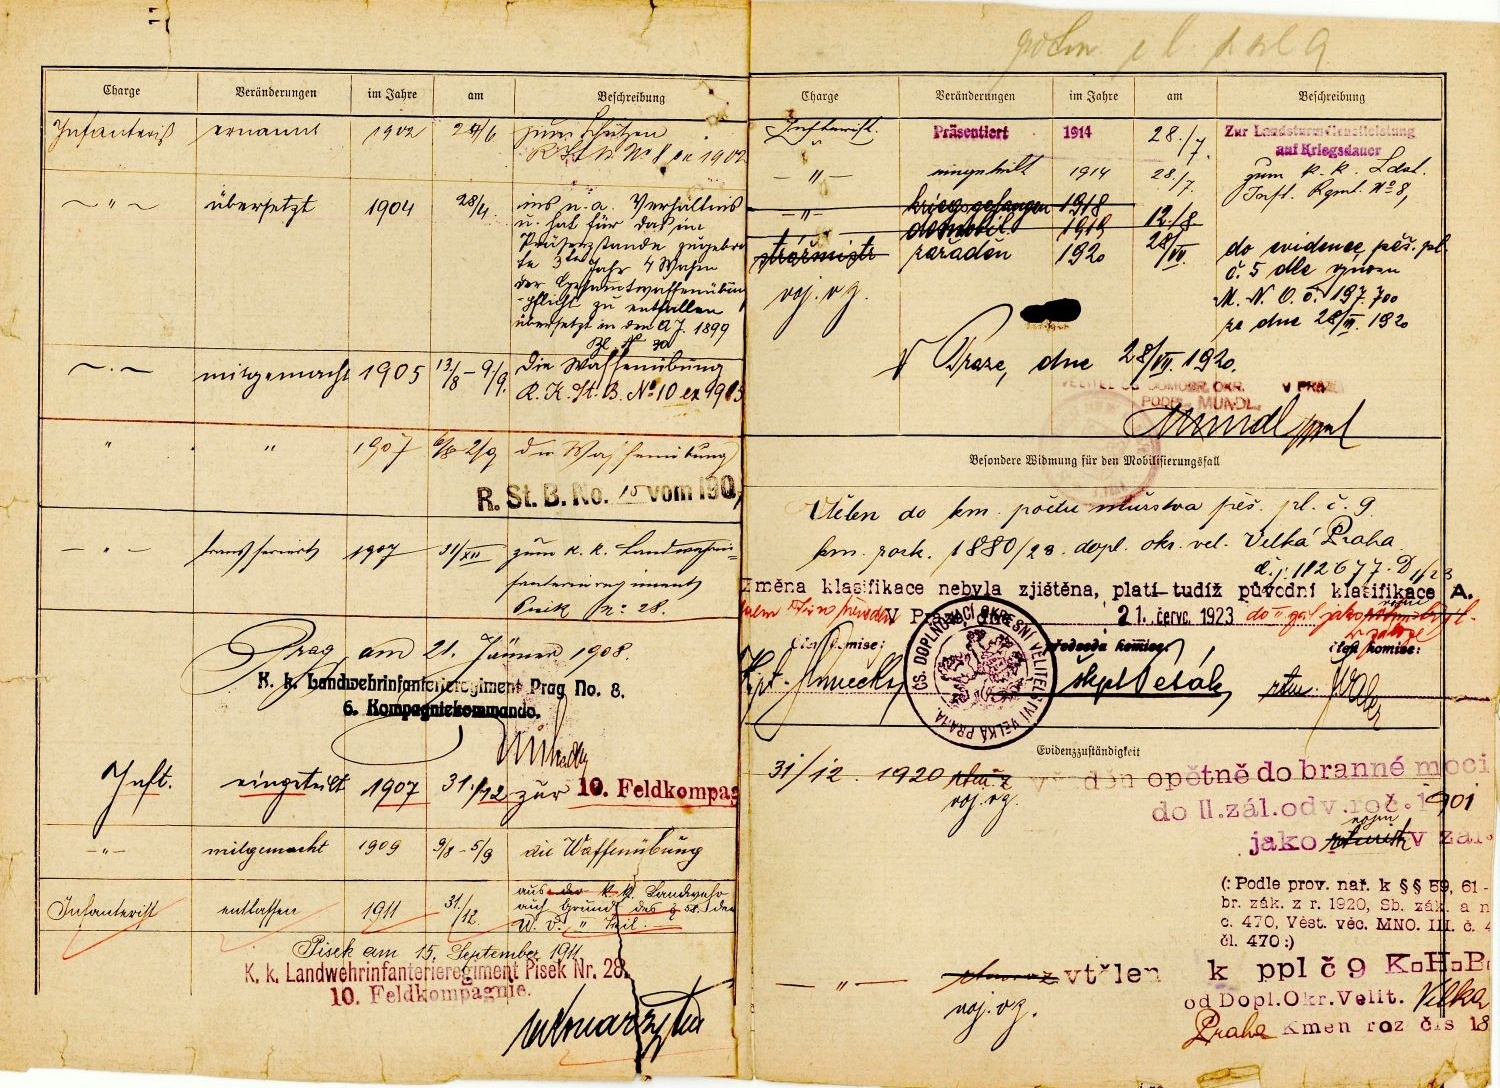 11
Charge Veränderungen im Jahre am Beschreibung
Infanterist ernannt 1902 24/6 zum Schützen
No 8 1902
〜 " 〜 übersetzt 1904 28/4 ins n. a. Verhältnis
u. hat für das im
Präsenzstande zugebra
te 3te Jahr 4 Wochen
der Gesamtwaffenübun
pflicht zu entfallen
übersetzt in den A. J. 1899
Bl. No 30
mitgemacht 1905 13/8 – 9/9 die Waffenübung
R. K. St. B. No 10 ex 1905
" " 1907 6/8 – 2/9 die Waffenübung
R. St. B. No. 15 vom 190
— " — transferiert 1907 31/XII zum k. k. Landwehrin=
fanterieregiment
Pisek No 28.
Prag am 21. Jänner 1908.
K. k. Landwehrinfanterieregiment Prag No. 8.
6. Kompagniekommando.
Inft. eingeteilt 1907 31./12 zur 10. Feldkompag
— " — mitgemacht 1909 9/8 – 5/9 die Waffenübung
Infanterist entlassen 1911 31./12. aus der k. k. Landwehr
auf Grund des § 58. der
W. V. " Teil.
Pisek am 15. September 1911
K. k. Landwehrinfanterieregiment Pisek Nr. 28.
10. Feldkompagnie.
Charge Veränderungen im Jahre am Beschreibung
Infterist. Präsentiert 1914 28./7. Zur Landsturmdienstleistung
auf Kriegsdauer
— " — eingeteilt 1914 28./7. zum k. k. Ldst.
Inft. Rgmt. No 8,
— " — kriegsgefangen 1918
demobil. 1919 12./8.
strážmistr zařaděn 1920 28/VII. do evidence pěš. pl.
voj. v z. č. 5 dle výnosu
M. N. O. č. 197.700
ze dne 28/VII. 1920
V Praze, dne 28/VII. 1920.
VELITEL DOMOBR. OKR. V PRAZE
PODPL. MUNDL.
Mundl
Besondere Widmung für den Mobilisierungsfall
Včlen do km. počtu mužstva pěš. pl. č. 9
km. rock. 1880/23. dopl. okr. vel. Velká Praha
č. j. 112677. D 1/23
Změna klasifikace nebyla zjištěna, platí tudíž původní klasifikace A.
V Pra 21. červc. 1923
člen komise: předseda komise: člen komise:
ČS. DOPLŇOVACÍ OKRESNÍ VELITELSTVÍ VELKÁ PRAHA
Evidenzzuständigkeit
31/12. 1920 děn opětně do branné moci
voj. v z. do II. zál. odv. roč. 1901
jako vojín v zál.
(: Podle prov. nař. k §§ 59, 61 -
br. zák. z r. 1920, Sb. zák. a n
c. 470, Věst. věc. MNO. III. č. 4
čl. 470 :)
— " — vtělen k ppl č 9 K.H.B
voj. v z. od Dopl. Okr. Velit. Velká
Praha Kmen roz čís 18